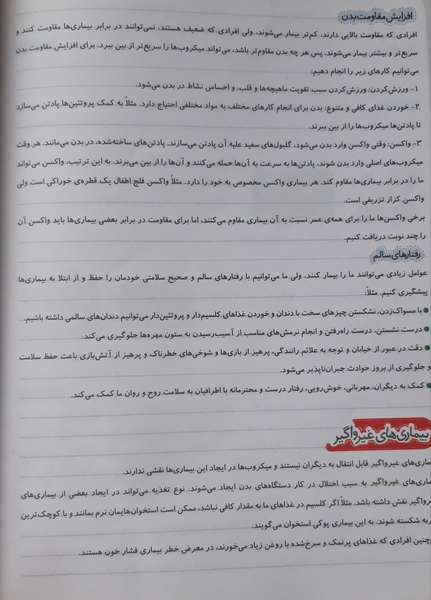 افزایش مقاومت بدن
افرادی که مقاومت بالایی دارند، کم‌تر بیمار می‌شوند، ولی افرادی که ضعیف هستند، نمی‌توانند در برابر بیماری‌ها مقاومت کنند و
سریع‌تر و بیشتر بیمار می‌شوند. پس هر چه بدن مقاوم‌تر باشد، می‌تواند میکروب‌ها را سریع‌تر از بین ببرد. برای افزایش مقاومت بدن
می‌توانیم کارهای زیر را انجام دهیم:
۱- ورزش کردن: ورزش کردن سبب تقویت ماهیچه‌ها و قلب، و احساس نشاط در بدن می‌شود.
۲- خوردن غذای کافی و متنوع: بدن برای انجام کارهای مختلف به مواد مختلفی احتیاج دارد. مثلاً به کمک پروتئین‌ها پادتن می‌سازد
تا پادتن‌ها میکروب‌ها را از بین ببرند.
۳- واکسن: وقتی واکسن وارد بدن می‌شود، گلبول‌های سفید علیه آن پادتن می‌سازند. پادتن‌های ساخته‌شده، در بدن می‌مانند. هر وقت
میکروب‌های اصلی وارد بدن شوند، پادتن‌ها به سرعت به آن‌ها حمله می‌کنند و آن‌ها را از بین می‌برند. به این ترتیب، واکسن می‌تواند
ما را در برابر بیماری‌ها مقاوم کند. هر بیماری واکسن مخصوص به خود را دارد. مثلاً واکسن فلج اطفال یک قطره‌ی خوراکی است ولی
واکسن کزاز تزریقی است.
برخی واکسن‌ها ما را برای همه‌ی عمر نسبت به آن بیماری مقاوم می‌کنند، اما برای مقاومت در برابر بعضی بیماری‌ها باید واکسن آن
را چند نوبت دریافت کنیم.
رفتارهای سالم
عوامل زیادی می‌توانند ما را بیمار کنند، ولی ما می‌توانیم با رفتارهای سالم و صحیح سلامتی خودمان را حفظ و از ابتلا به بیماری‌ها
پیشگیری کنیم. مثلاً:
● با مسواک‌زدن، نشکستن چیزهای سخت با دندان و خوردن غذاهای کلسیم‌دار و پروتئین‌دار می‌توانیم دندان‌های سالمی داشته باشیم.
● درست نشستن، درست راه‌رفتن و انجام نرمش‌های مناسب از آسیب‌رسیدن به ستون مهره‌ها جلوگیری می‌کند.
● دقت در عبور از خیابان و توجه به علائم رانندگی، پرهیز از بازی‌ها و شوخی‌های خطرناک و پرهیز از آتش‌بازی باعث حفظ سلامت
و جلوگیری از بروز حوادث جبران‌ناپذیر می‌شود.
● کمک به دیگران، مهربانی، خوش‌رویی، رفتار درست و محترمانه با اطرافیان به سلامت روح و روان ما کمک می‌کند.
بیماری‌های غیرواگیر
ماری‌های غیرواگیر قابل انتقال به دیگران نیستند و میکروب‌ها در ایجاد این بیماری‌ها نقشی ندارند.
ماری‌های غیرواگیر به سبب اختلال در کار دستگاه‌های بدن ایجاد می‌شوند. نوع تغذیه می‌تواند در ایجاد بعضی از بیماری‌های
رواگیر نقش داشته باشد. مثلاً اگر کلسیم در غذاهای ما به مقدار کافی نباشد، ممکن است استخوان‌هایمان نرم بمانند و با کوچک‌ترین
به شکسته شوند. به این بیماری پوکی استخوان می‌گویند.
چنین افرادی که غذاهای پرنمک و سرخ‌شده با روغن زیاد می‌خورند، در معرض خطر بیماری فشار خون هستند.